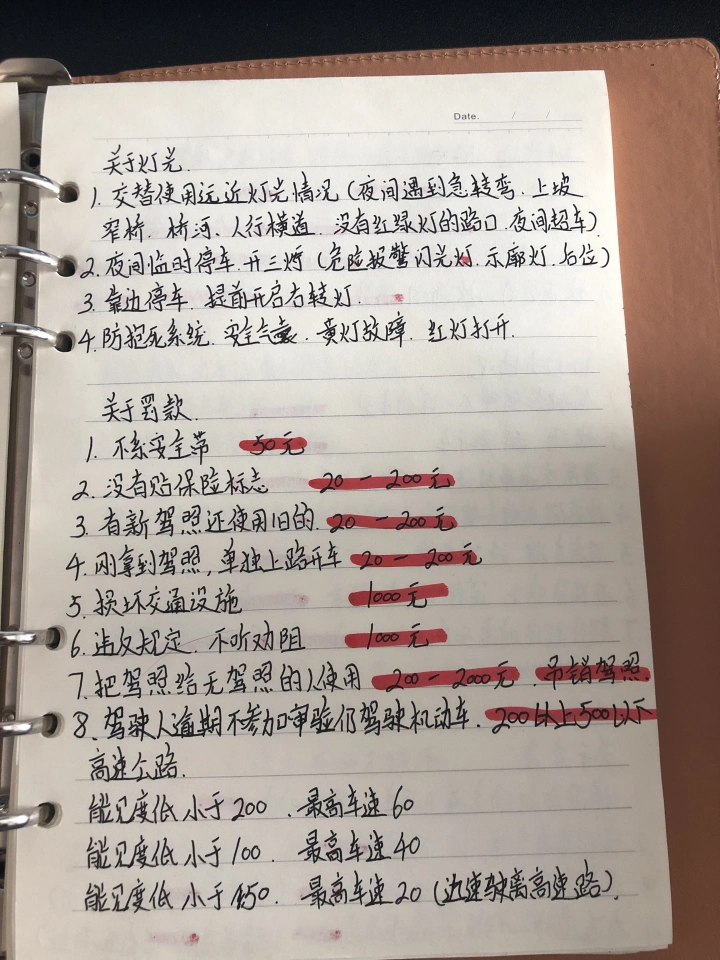 Date. / /
关于灯光.
1. 交替使用远近灯光情况(夜间遇到急转弯. 上坡
窄桥. 桥河. 人行横道. 没有红绿灯的路口. 夜间超车)
2. 夜间临时停车. 开三灯 (危险报警闪光灯. 示廓灯. 后位)
3. 靠边停车. 提前开启右转灯.
4. 防抱死系统. 安全气囊. 黄灯故障. 红灯打开.
关于罚款.
1. 不系安全带 50元
2. 没有贴保险标志 20 - 200元
3. 有新驾照还使用旧的. 20 - 200元
4. 刚拿到驾照, 单独上路开车 20 - 200元
5. 损坏交通设施 1000元
6. 违反规定. 不听劝阻 1000元
7. 把驾照给无驾照的人使用 200 - 2000元. 吊销驾照.
8. 驾驶人逾期不参加审验仍驾驶机动车. 200以上500以下
高速公路.
能见度低 小于200 . 最高车速60
能见度低 小于100 . 最高车速40
能见度低 小于50 . 最高车速20 (边速驶离高速路).